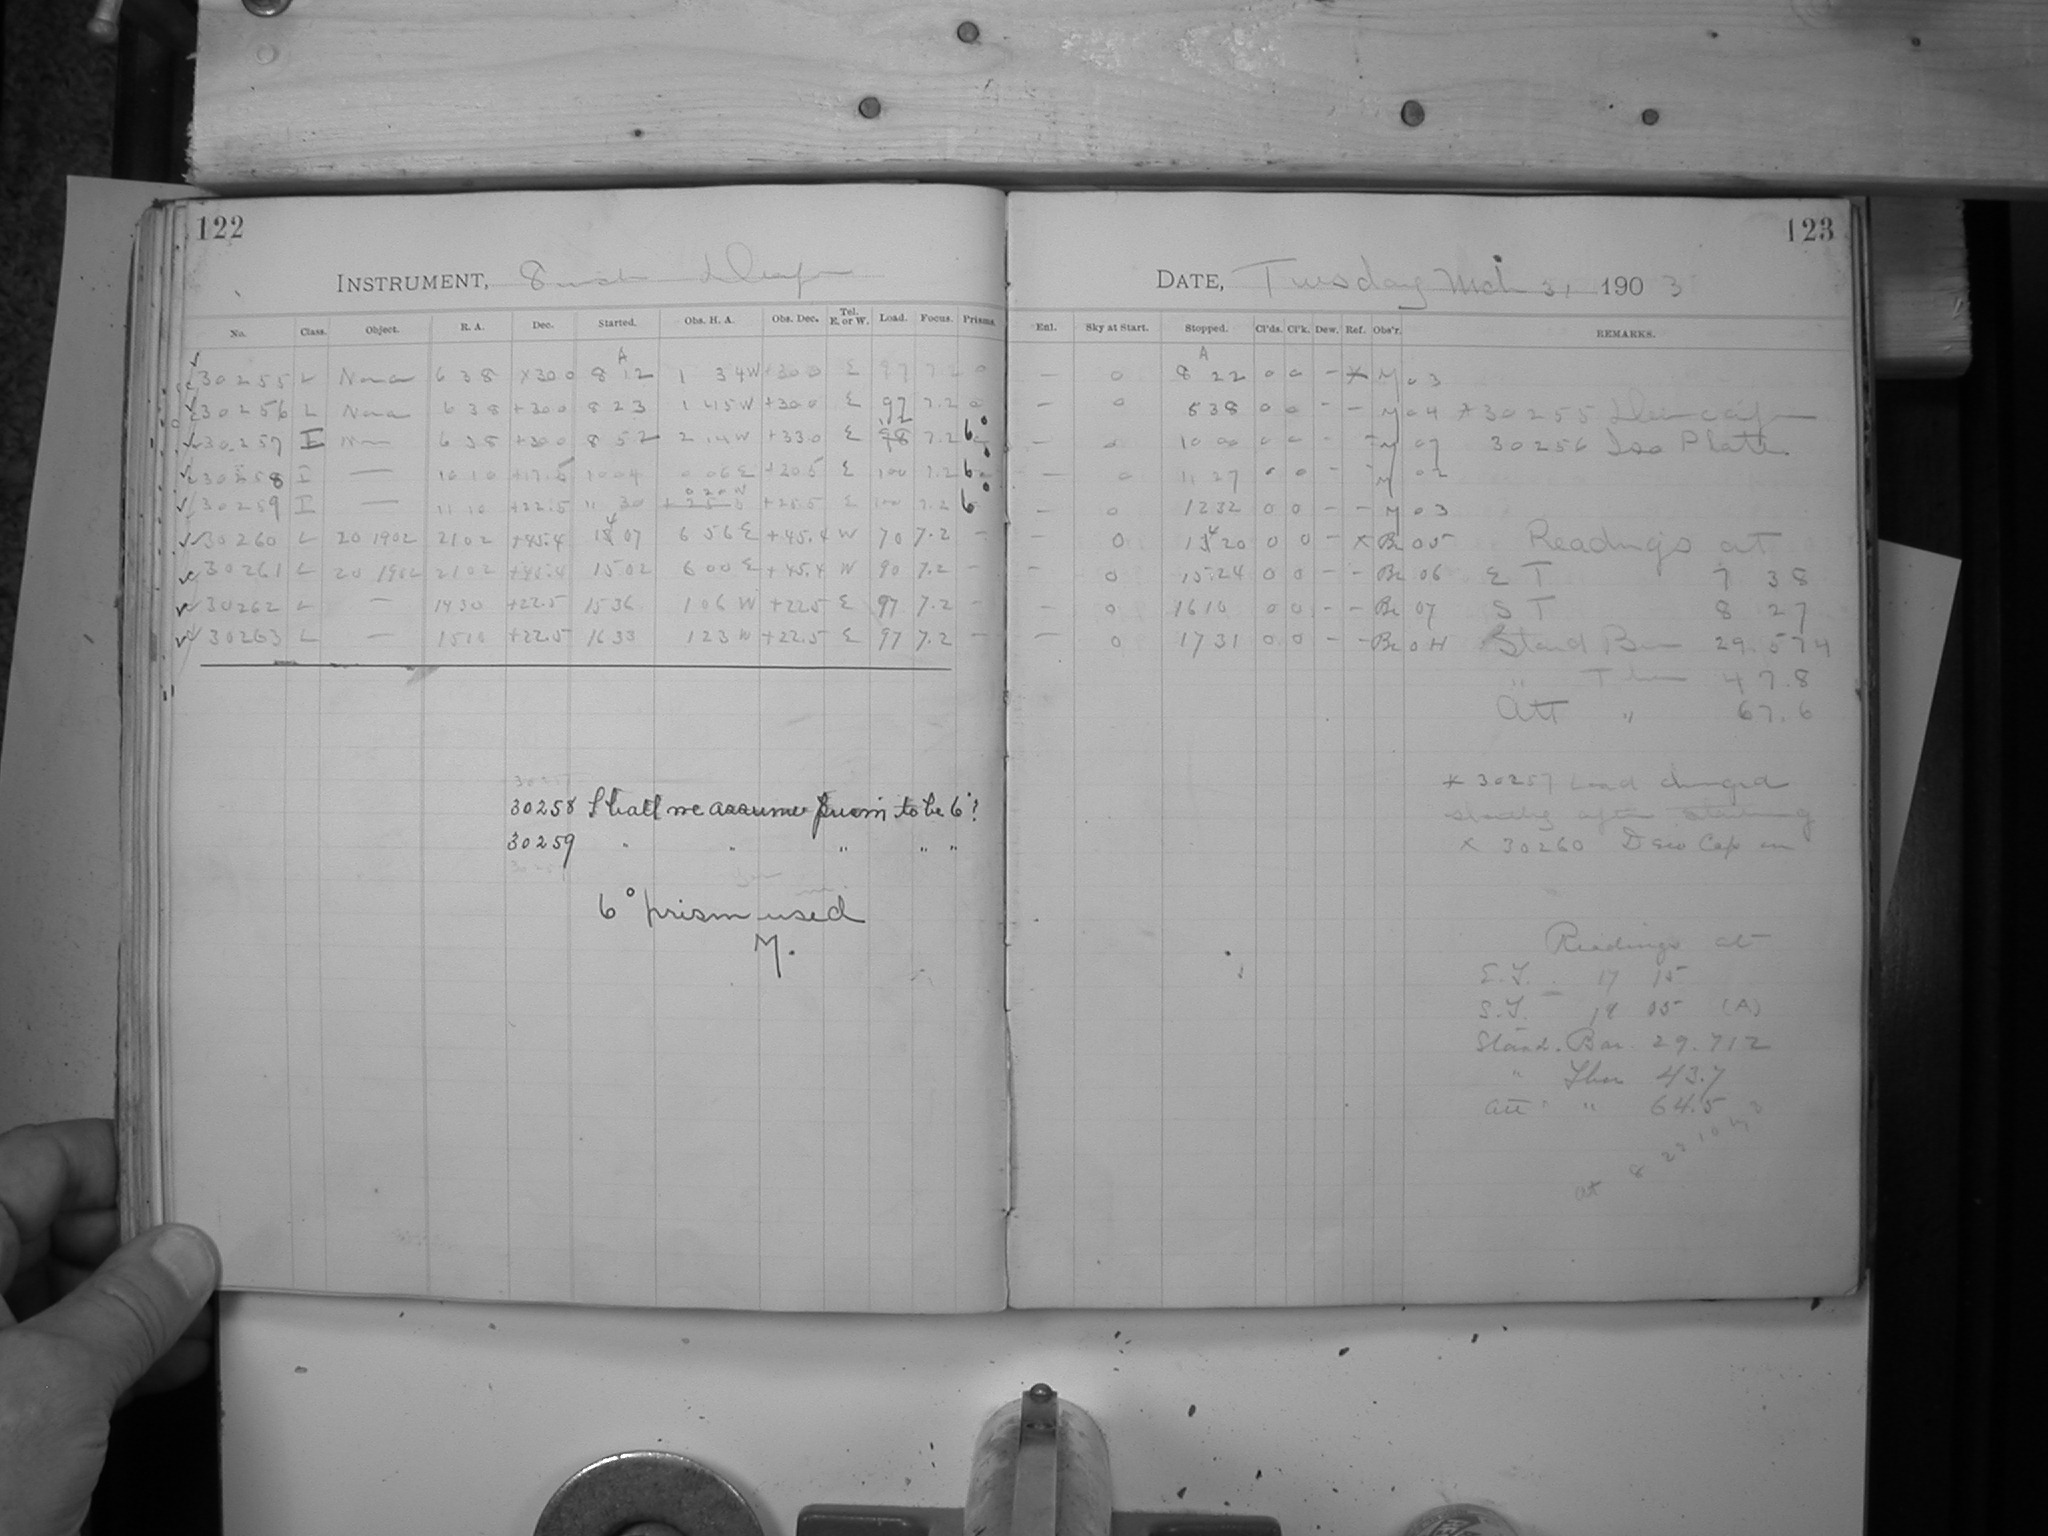 122
INSTRUMENT, 8 inch Draper
No. Class. Object. R. A. Dec. Started. Obs. H. A. Obs. Dec. Tel. E. or W. Load. Focus. Prisms.
A
30255 L Nova 6 38 +30 0 8 12 1 34 W +30 0 E 97 7.2 0
30256 L Nova 6 38 +30 0 8 23 1 45 W +30 0 E 97 7.2 0
30257 I 6 38 +30 0 8 52 2 14 W +33.0 E 98 7.2 6°
30258 I — 10 10 +17.5 10 04 0 06 E +20.5 E 100 7.2 6°
30259 I — 11 10 +22.5 11 30 0 20 W +25.5 E 100 7.2 6°
30260 L 20 1902 21 02 +45.4 14 07 6 56 E +45.4 W 70 7.2 –
30261 L 20 1902 21 02 +45.4 15 02 6 00 E +45.4 W 90 7.2 –
30262 L — 14 30 +22.5 15 36 1 06 W +22.5 E 97 7.2 –
30263 L — 15 10 +22.5 16 33 1 23 W +22.5 E 97 7.2 –
30258 Shall we assume prism to be 6°?
30259 " " " " "
6° prism used
M.
123
DATE, Tuesday Mch 31, 1903
Enl. Sky at Start. Stopped. Cl'ds. Cl'k. Dew. Ref. Obs'r. REMARKS.
A
— 0 8 22 0 0 – * M 03
— 0 8 38 0 0 – – M 04 * 30255
— 0 10 00 0 0 – – M 07 30256 Iso Plate
— 0 11 27 0 0 – – M 02
— 0 12 32 0 0 – – M 03
— 0 14 20 0 0 – x Be 05 Readings at
— 0 15 24 0 0 – – Be 06 E T 7 38
— 0 16 10 0 0 – – Be 07 S T 8 27
— 0 17 31 0 0 – – Be 04 Stand Bar 29.574
" Ther 47.8
Att " 67.6
* 30257 Load changed
shortly after starting
x 30260 Dew Cap on
Readings at
E.T. 17 15
S.T. 18 05 (A)
Stand. Bar. 29.712
" Ther 43.7
Att " 64.5
at 8 23 10